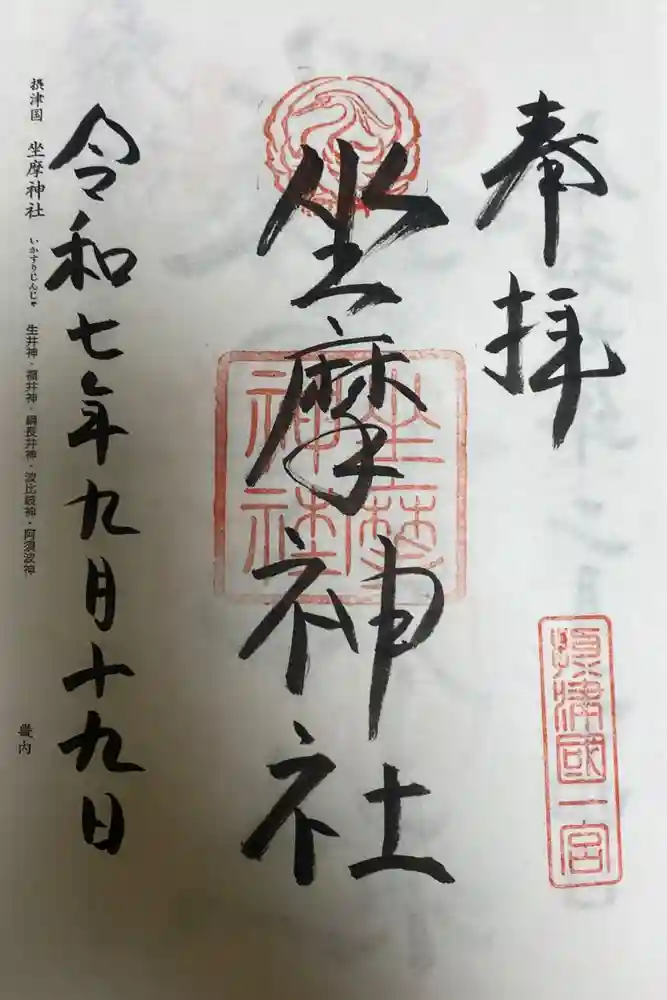 奉拝
摂津國一宮
坐摩神社
坐摩神社
令和七年九月十九日
摂津国 坐摩神社 いかすりじんじゃ 生井神・福井神・綱長井神・波比岐神・阿須波神
畿内